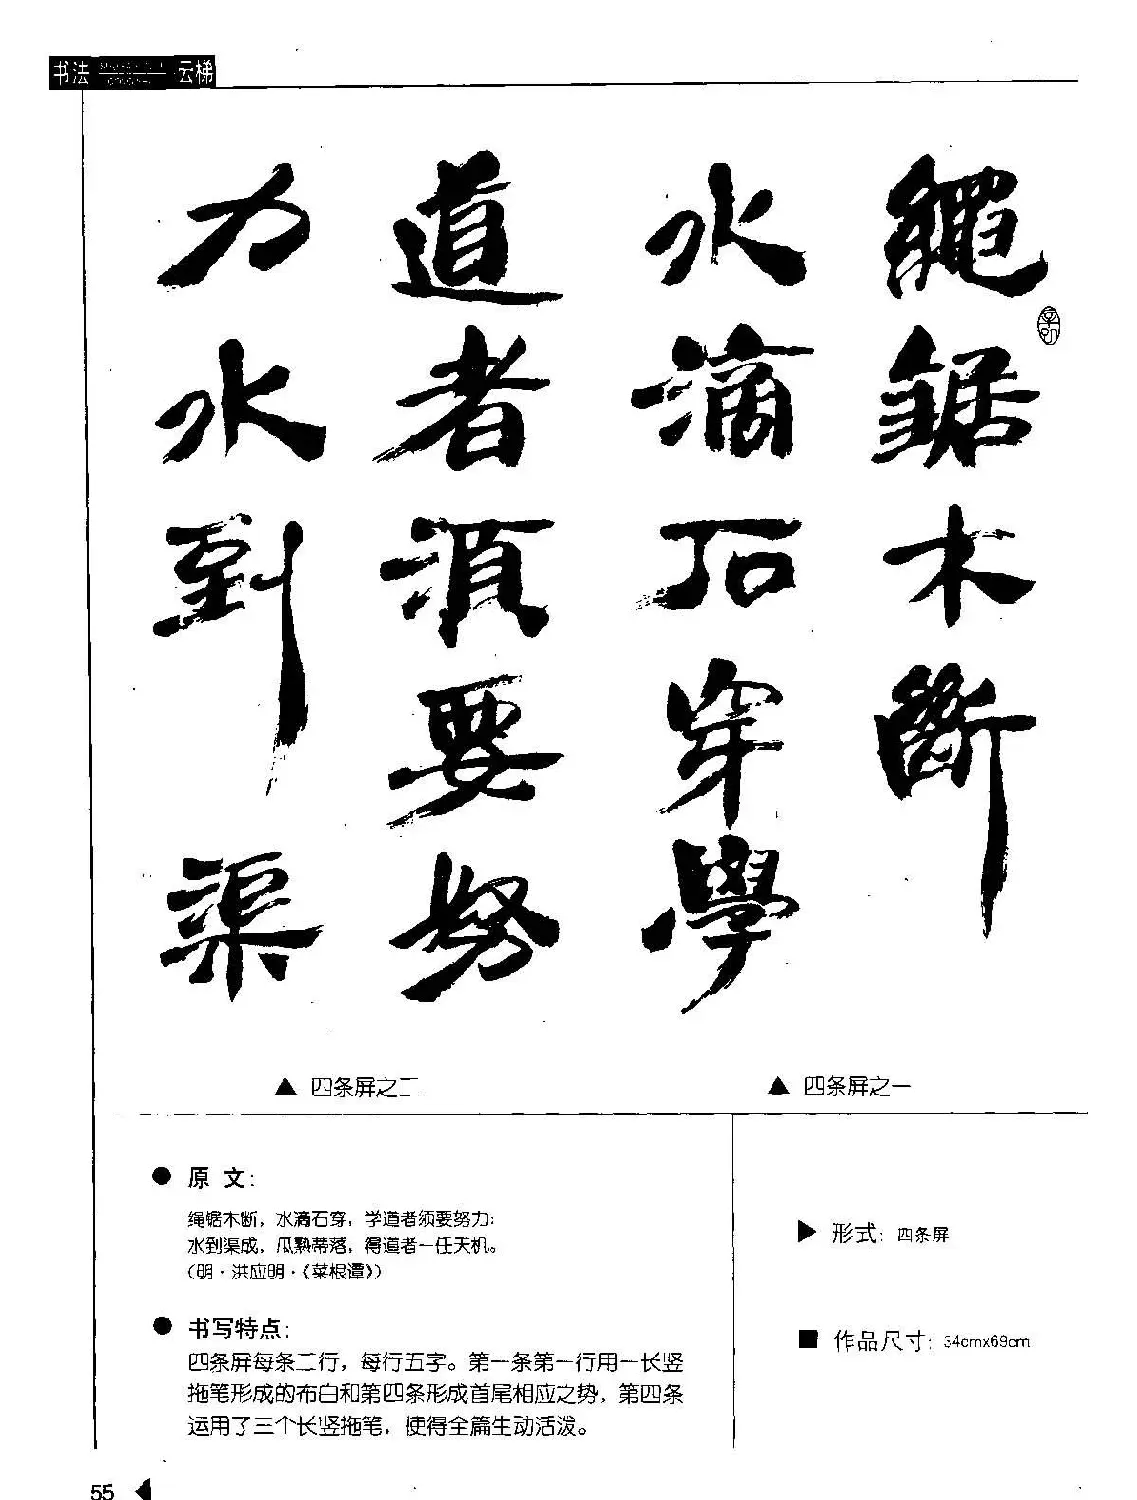 书法 云梯
繩鋸木斷
水滴石穿學
道者須要努
力水到渠
▲ 四条屏之二
▲ 四条屏之一
● 原 文：
绳锯木断，水滴石穿，学道者须要努力；
水到渠成，瓜熟蒂落，得道者一任天机。
（明·洪应明·《菜根谭》）
● 书写特点：
四条屏每条二行，每行五字。第一条第一行用一长竖
拖笔形成的布白和第四条形成首尾相应之势，第四条
运用了三个长竖拖笔，使得全篇生动活泼。
▶ 形式：四条屏
■ 作品尺寸：34cmx69cm
55